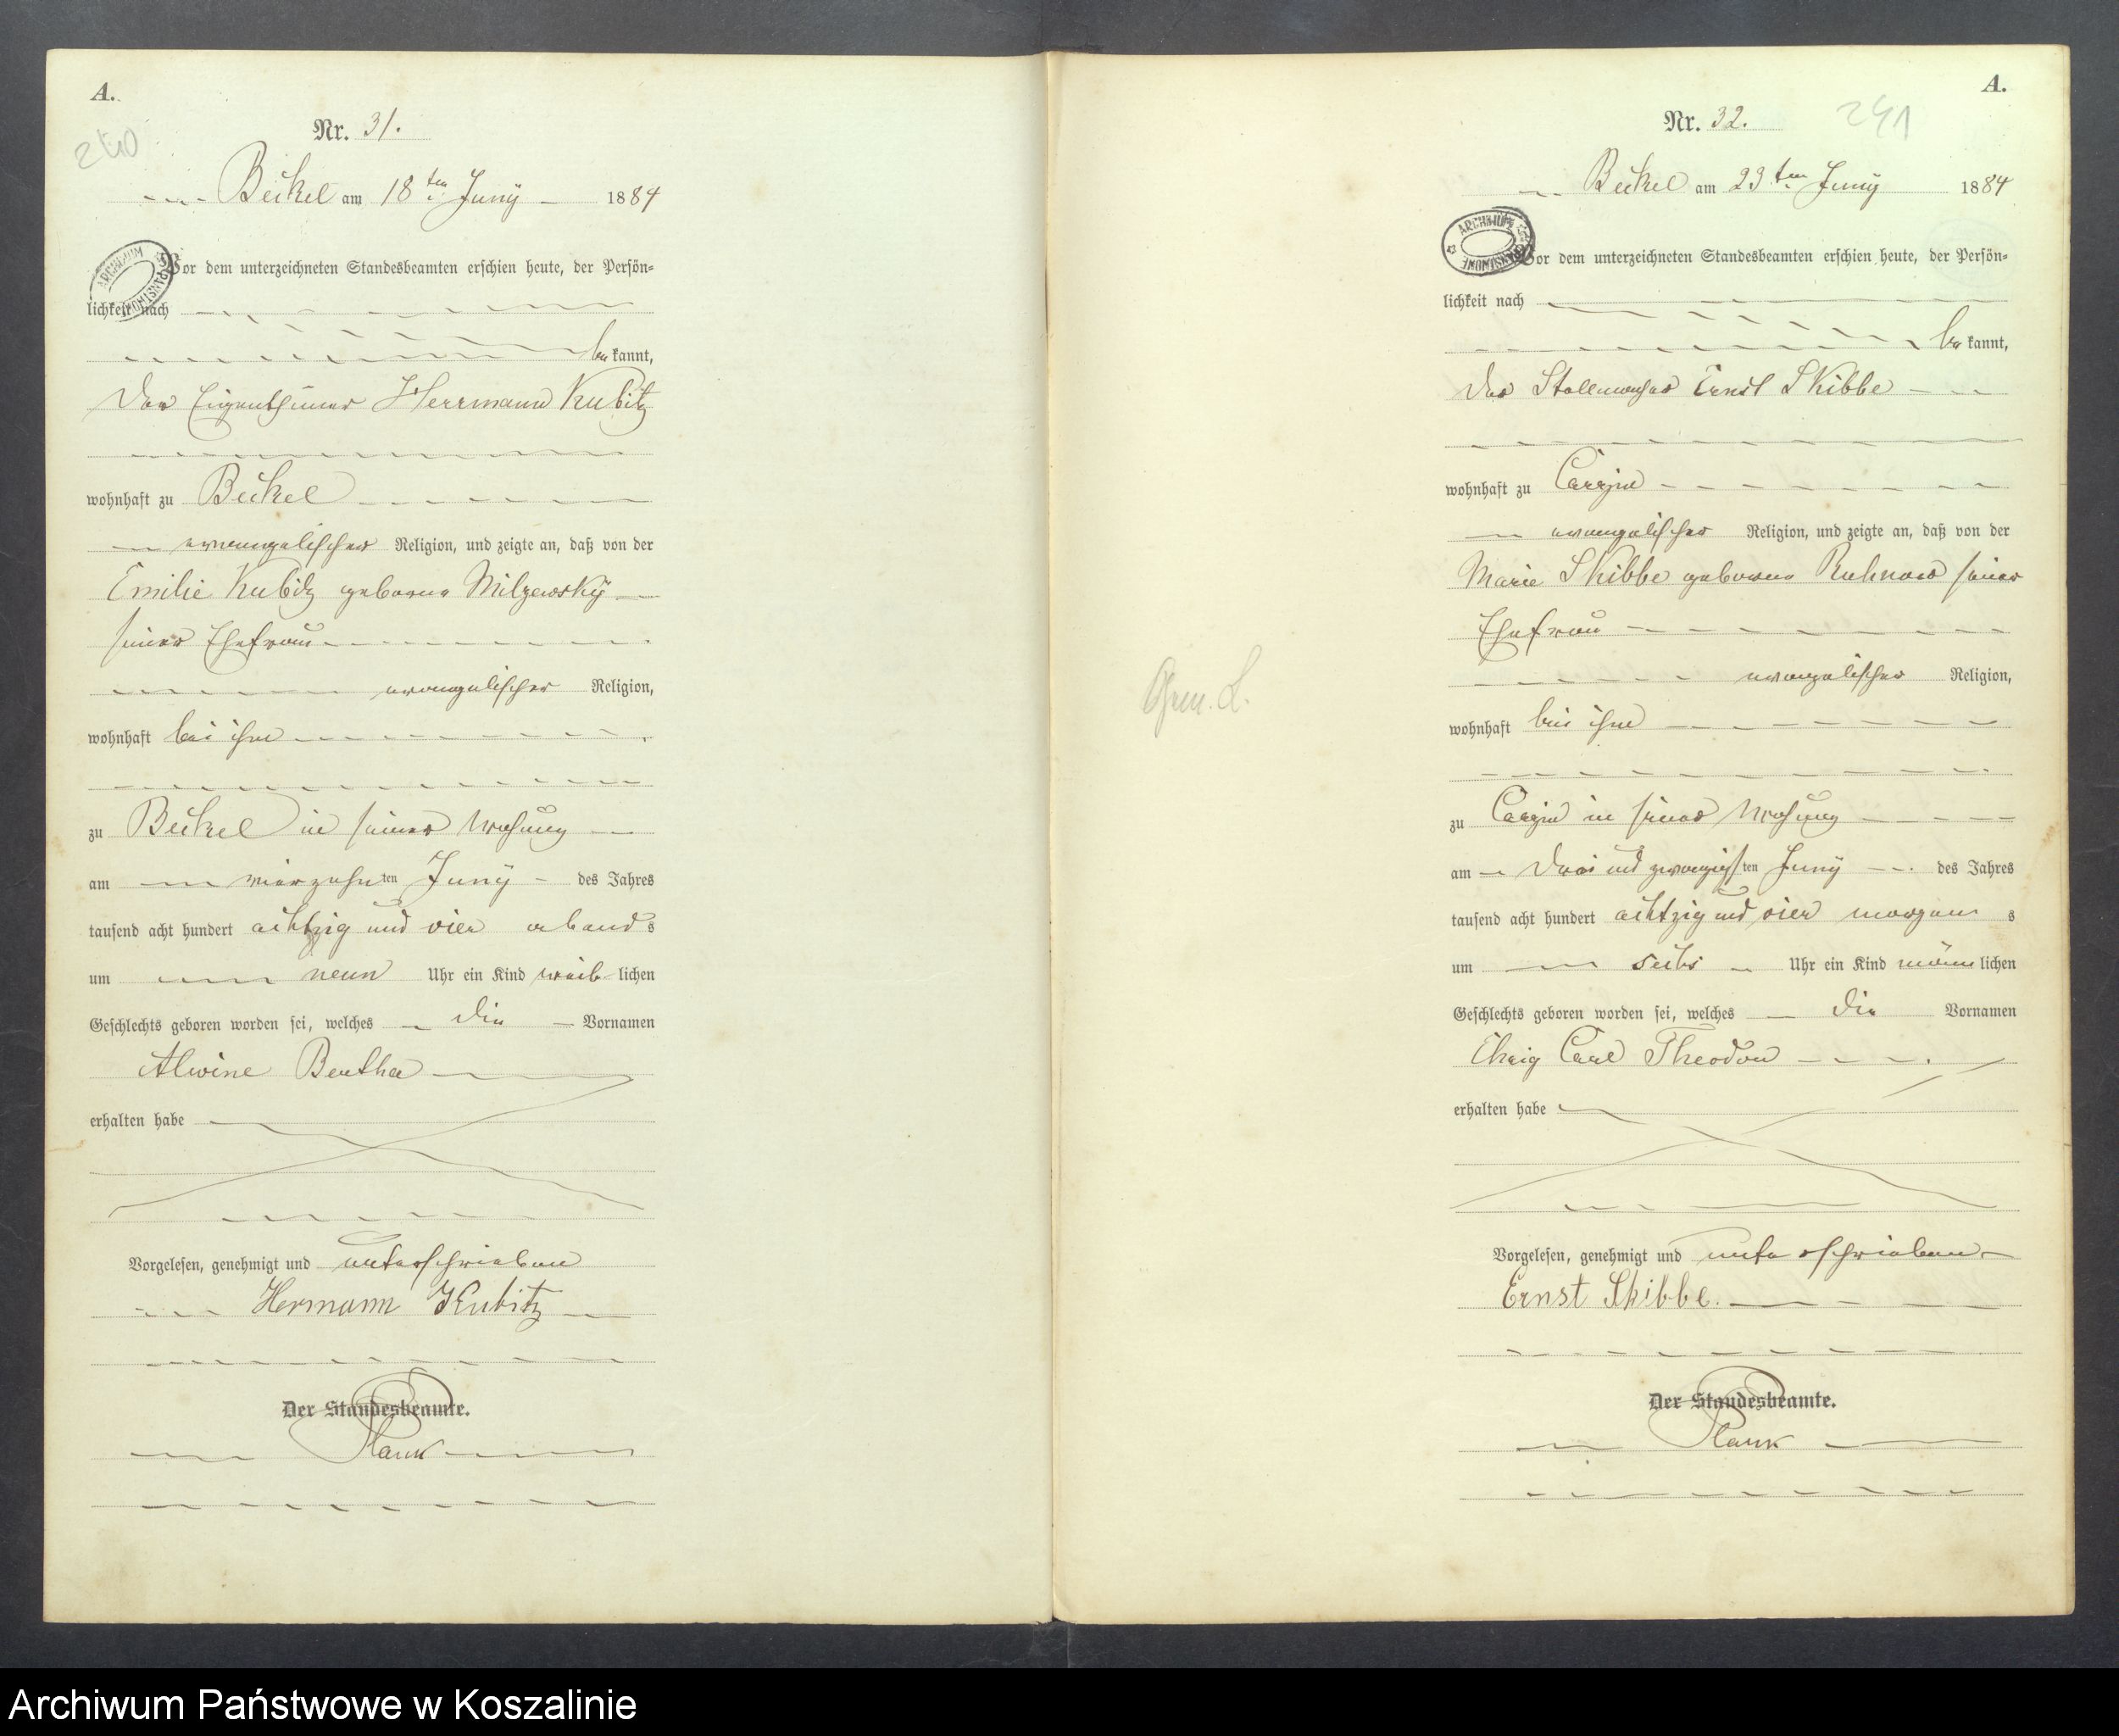 A.
240
Nr. 31.
Beikel am 18ten Juny 1884
Vor dem unterzeichneten Standesbeamten erschien heute, der Persön=
lichkeit nach
be kannt,
Der Eigenthümer Herrmann Kubitz
wohnhaft zu Beikel
evangelischer Religion, und zeigte an, daß von der
Emilie Kubitz geborene Milzewsky
seiner Ehefrau
evangelischer Religion,
wohnhaft bei ihm
zu Beikel in seiner Wohnung
am vierzehnten Juny des Jahres
tausend acht hundert achtzig und vier abends
um neun Uhr ein Kind weiblichen
Geschlechts geboren worden sei, welches die Vornamen
Alwine Bertha
erhalten habe
Vorgelesen, genehmigt und unterschrieben
Hermann Kubitz
Der Standesbeamte.
A.
241
Nr. 32.
Beikel am 23ten Juny 1884
ARCHIWUM
Vor dem unterzeichneten Standesbeamten erschien heute, der Persön=
lichkeit nach
be kannt,
Der Stellmacher Ernst Skibbe
wohnhaft zu Carzin
evangelischer Religion, und zeigte an, daß von der
Marie Skibbe geborene Ruhnow seiner
Ehefrau
evangelischer Religion,
wohnhaft bei ihm
zu Carzin in seiner Wohnung
am drei und zwanzigsten Juny des Jahres
tausend acht hundert achtzig und vier morgens
um sechs Uhr ein Kind männlichen
Geschlechts geboren worden sei, welches die Vornamen
Carl Theodor
erhalten habe
Vorgelesen, genehmigt und unterschrieben
Ernst Skibbe.
Der Standesbeamte.
Archiwum Państwowe w Koszalinie